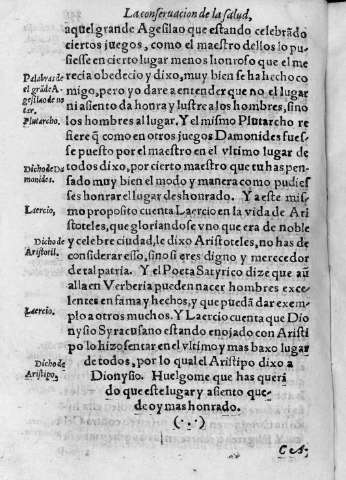 La conseruacion de la salud,
aquel grande Agesilao que estando celebrãdo
ciertos juegos, como el maestro dellos lo pu
siesse en cierto lugar menos honroso que el me
recia obedecio y dixo, muy bien se ha hecho co
migo, pero yo dare a entender que no el lugar
ni asiento da honra y lustre a los hombres, sino
los hombres al lugar. Y el mismo Plutarcho re
fiere q̃ como en otros juegos Damonides fues-
se puesto por el maestro en el vltimo lugar de
todos dixo, por cierto maestro que tu has pen-
sado muy bien el modo y manera como pudies
ses honrar el lugar deshonrado. Y a este mis-
mo proposito cuenta Laercio en la vida de Ari
stoteles, que gloriandose vno que era de noble
y celebre ciudad, le dixo Aristoteles, no has de
considerar esso, sino si eres digno y merecedor
de tal patria. Y el Poeta Satyrico dize que aũ
alla en Verberia pueden nacer hombres exce-
lentes en fama y hechos, y que puedã dar exem-
plo a otros muchos. Y Laercio cuenta que Dio
nysio Syracusano estando enojado con Aristi
po lo hizo sentar en el vltimo y mas baxo lugar
de todos, por lo qual el Aristipo dixo a
Dionysio. Huelgome que has queri
do que este lugar y asiento que-
de oy mas honrado.
(∴)
Palabras de
el grãde A-
gesilao de no
tar.
Plutarcho.
Dicho de Da
monides.
Laercio,
Dicho de
Aristotil.
Laercio.
Dicho de
Aristipo,